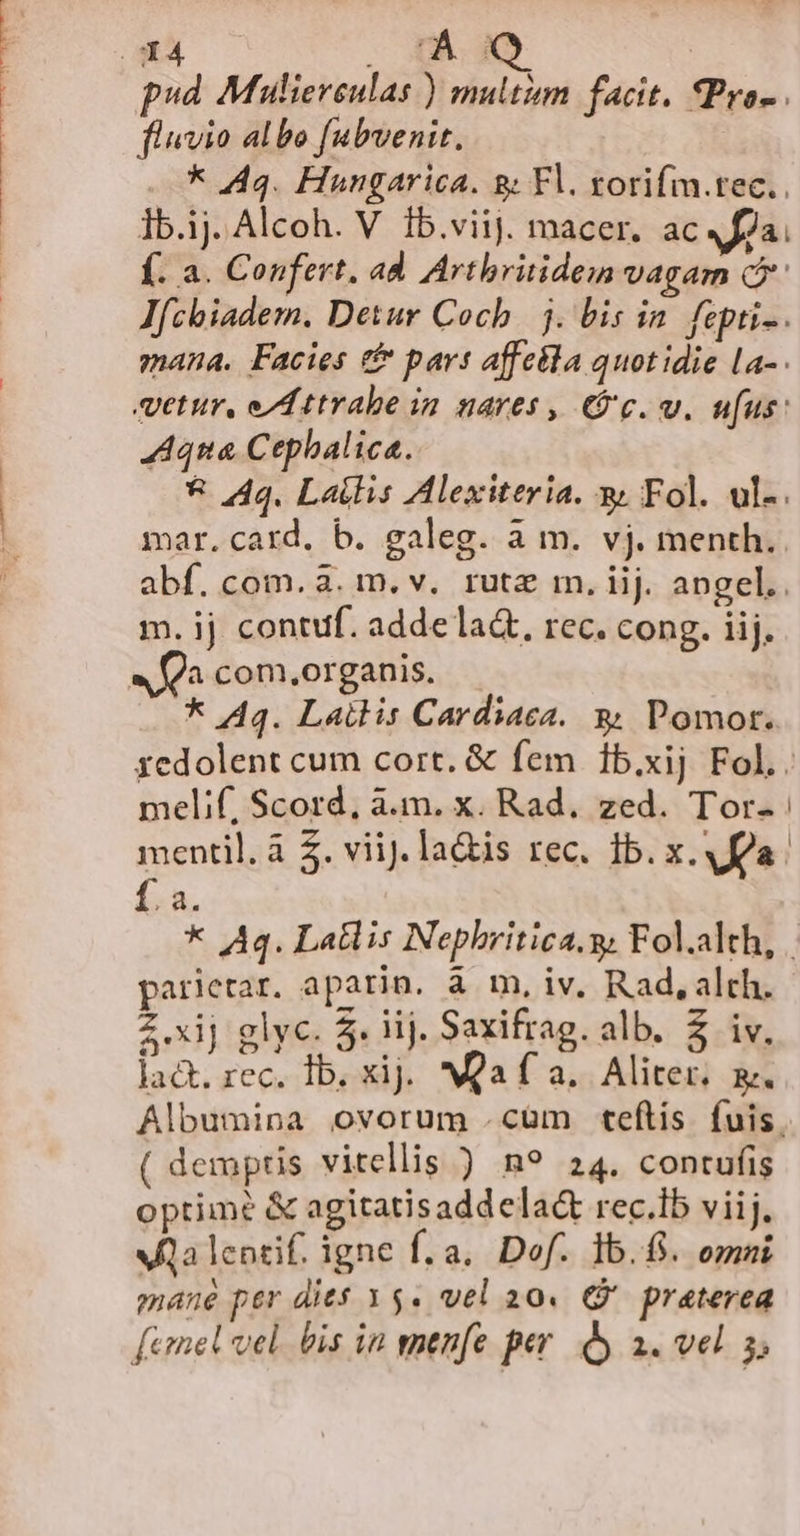 14 A Q
pud Muliereulas ) multùm facit. Pro-
fluvio albo ſubvenit.
* Aq. Hungarica. ℞ Fl. roriſm.rec.
℔.ij. Alcoh. V ℔.viij. macer, ac a
ſ. a. Confert, ad Arthritidem vagam &
Iſchiadem. Detur Coch j. bis in ſepti-
mana. Facies & pars affecta quotidie la-
vetur, Attrahe in nares, &c. v. uſus
Aqua Cephalica.
* Aq. Lactis Alexiteria. ℞ Fol. ul-
mar. card. b. galeg. ā m. vj. menth.
abſ. com. ā. m. v. rutæ m. iij. angel.
m. ij contuſ. adde lact, rec. cong. iij.
a com.organis.
* Aq. Lactis Cardiaca. ℞ Pomor.
redolent cum cort. & ſem ℔.xij Fol.
meliſ, Scord, ā.m. x. Rad. zed. Tor-
mentil. ā ℥. viij. lactis rec. ℔. x. a
ſ. a.
* Aq. Lactis Nephritica. ℞ Fol.alth,
parietar. aparin. ā m, iv. Rad, alth.
℥.xij glyc. ℥. iij. Saxifrag. alb. ℥ iv.
lact. rec. ℔. xij. a ſ a. Aliter. ℞.
Albumina ovorum cum teſtis ſuis
( demptis vitellis ) nº 24. contuſis
optimè & agitatisaddelact rec.℔ viij.
a lentiſ. igne ſ. a. Doſ. ℔. ß. omni
manè per dies 15. vel 20. & præterea
ſemel vel bis in menſe per 2. vel 3,